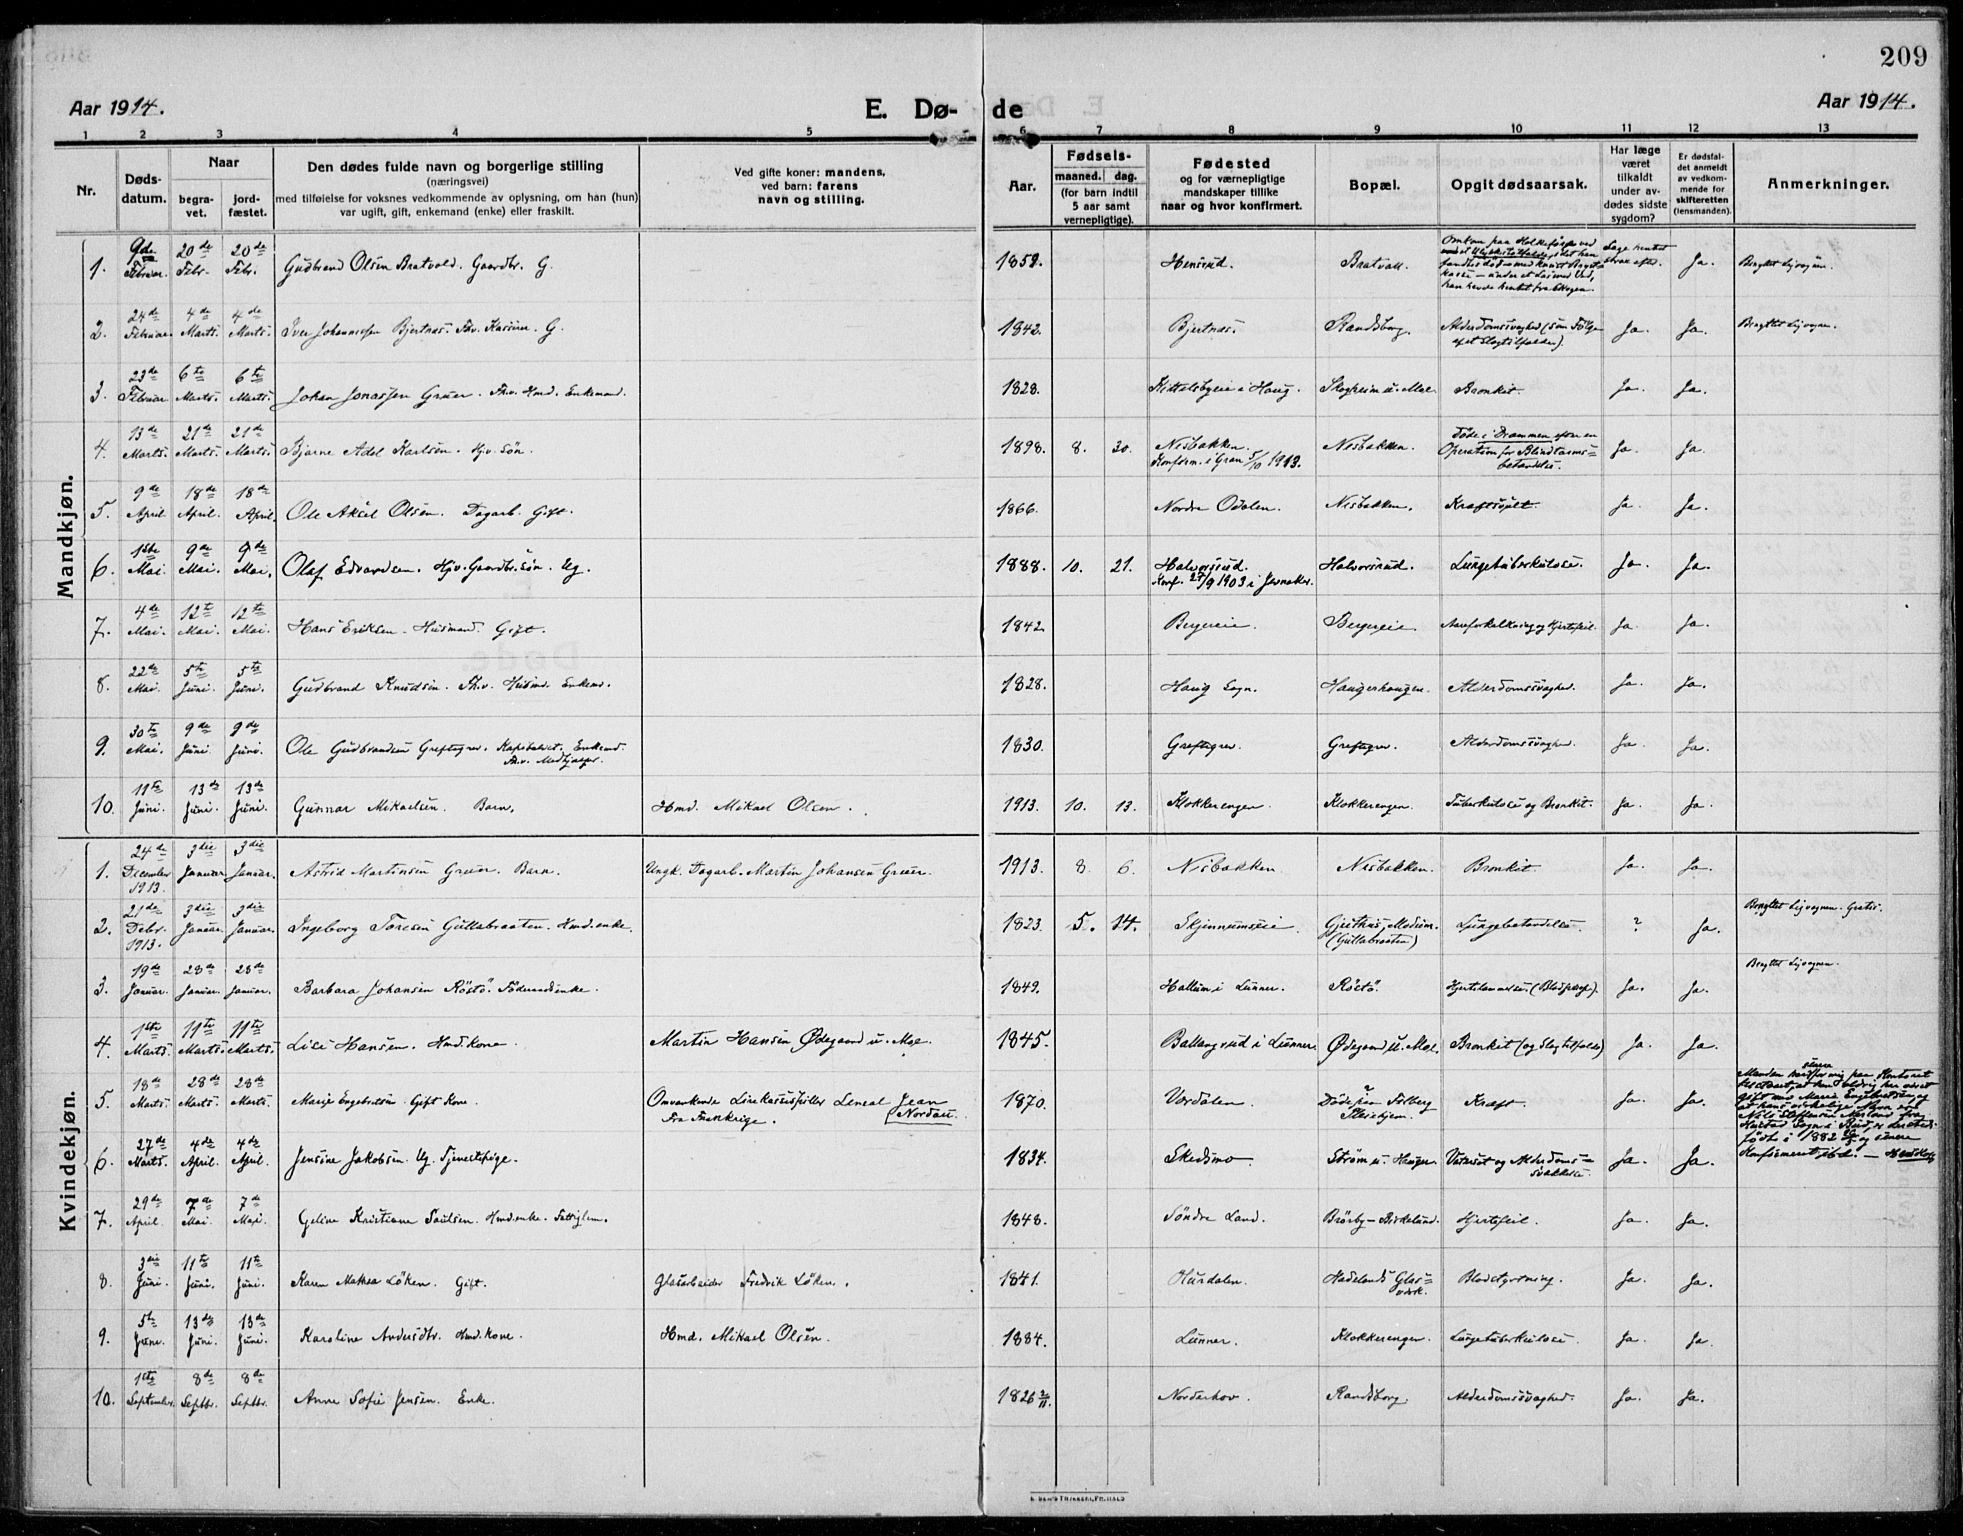 209
Aar 1914.
E. Dø- de
Aar 1914.
1 2 3 4 5 6 7 8 9 10 11 12 13
Nr.
Døds-
datum.
Naar
begra-
vet.
jord-
fæstet.
Den dødes fulde navn og borgerlige stilling
(næringsvei)
med tilføielse for voksnes vedkommende av oplysning, om han (hun)
var ugift, gift, enkemand (enke) eller fraskilt.
Ved gifte koner: mandens,
ved barn: farens
navn og stilling.
Aar.
Fødsels-
maaned. dag.
(for barn indtil
5 aar samt
vernepligtige).
Fødested
og for værnepligtige
mandskaper tillike
naar og hvor konfirmert.
Bopæl.
Opgit dødsaarsak.
Har læge
været
tilkaldt
under av-
dødes sidste
sygdom?
Er dødsfal-
det anmeldt
av vedkom-
mende for
skifteretten
(lensmanden).
Anmerkninger.
Mandkjøn.
1. 9de Februar. 20de Febr. 20de Febr. Gudbrand Olsen Bratvold. Gaardbr. G. 1852. Hensrud. Bratvall. Ja.
2. 24de Februar. 4de Marts. 4de Marts. Iver Johannessen Bjertnæs. Fhv. Kasserer. G. 1842. Bjertnæs. Randsborg. Alderdomssvaghed (som Følge
af et Slagtilfælde). Ja. Ja. Benyttet Ligvognen.
3. 23de Februar 6te Marts. 6te Marts. Johan Jonassen Gruer. Fhv. Hmd. Enkemand. 1828. Kittelsbyeie i Haug. Skogheim u. Moe. Bronkit. Ja. Ja.
4. 13de Marts. 21de Marts. 21de Marts. Bjarne Adel Karlsen. Hjv. Søn. 1898. 8. 30. Nisbakken.
Konfirm. i Gran 5/10 1913. Nisbakken. Døde i Drammen efter en
Operation for Blindtarms=
betændelse. Ja. Ja.
5. 9de April 18de April. 18de April. Ole Aksel Olsen. Dagarb. Gift. 1866. Nordre Odalen. Nisbakken. Kræftsvulst. Ja. Ja.
6. 1ste Mai. 9de Mai. 9de Mai. Olaf Edvardsen. Hjv. Gaardbr. søn. Ug. 1888. 10. 21. Halvorsrud.
Konf. 27/9 1903 i Jevnaker. Halvorsrud. Lungetuberkulose. Ja. Ja.
7. 4de Mai. 12te Mai. 12te Mai. Hans Eriksen. Husmand. Gift. 1842. Bergereie. Bergereie. Aareforkalkning og Hjertefeil. Ja. Ja.
8. 22de Mai. 5te Juni. 5te Juni. Gudbrand Knudsen. Fhv. Husmd. Enkemd. 1828. Haug Sogn. Haugerhaugen. Alderdomssvaghed. Ja. Ja.
9. 30te Mai. 9de Juni 9de Juni. Ole Gudbrandsen Greftegrev. Kapitalist. Enkemd.
Fhv. Medhjælper. 1830. Greftegrev. Greftegrev. Alderdomssvaghed. Ja. Ja.
10. 11te Juni. 13de Juni. 13de Juni. Gunnar Mikaelsen. Barn. Hmd. Mikael Olsen. 1913. 10. 13. Klokkerengen. Klokkerengen. Tuberkulose og Bronkit. Ja. Ja.
Kvindekjøn.
1. 24de December 1913. 3die Januar. 3die Januar. Astrid Martinsen Gruer. Barn. Ungk. Dagarb. Martin Johansen Gruer. 1913. 8. 6. Nisbakken. Nisbakken. Bronkit. Ja. Ja.
2. 21de Debr. 1913. 3die Januar. 3die Januar. Ingeborg Toresen Gullabraaten. Hmd. enke. 1823. 5. 14. Skjinnumseie. Gjeithus, Modum.
(Gullabraaten) Lungebetændelse. ? Ja. Benyttet Ligvognen. Gratis.
3. 19de Januar. 28de Januar. 28de Januar. Barbara Johansen Røstø. Føderaadsenke. 1849. Hallum i Lunner. Røstø. Ja. Ja. Benyttet Ligvognen.
4. 1ste Marts. 11te Marts. 11te Marts. Lise Hansen. Hmd. kone. Martin Hansen Ødegaard u. Moe. 1845. Ballangrud i Lunner. Ødegaard u. Moe. Bronkit (og Slagtilfælde) Ja. Ja.
5. 18de Marts. 28de Marts. 28de Marts. Marie Engebretsen. Gift Kone. Omvankende Lirekassespiller Jean
Nordau.
Fra Frankrige. 1870. Vardalen. Kræft. Ja. Ja.
6. 27de Marts. 4de April. 4de April. Jensine Jakobsen. Ug. Tjenestepige. 1834. Skedsmo. Strøm u. Hauger. Vatersot og Alderdoms=
svakhed. Ja. Ja.
7. 29de April. 7de Mai. 7de Mai. Geline Kristiane Paulsen. Hmd. enke. Fattiglem. 1848. Søndre Land. Brørby - Birkelund. Hjertefeil. Ja. Ja.
8. 3die Juni. 11te Juni. 11te Juni. Karen Mathea Løken. Gift. Glasarbeider Fredrik Løken. 1841. Hurdalen. Hadelands Glas=
verk. Blodstyrtning. Ja. Ja.
9. 5te Juni. 13de Juni. 13de Juni. Karoline Andersdtr. Hmd. kone. Hmd. Mikael Olsen. 1884. Lunner. Klokkerengen. Lungetuberkulose. Ja. Ja.
10. 1ste September. 8de Septbr. 8de Septbr. Anne Sofie Jensen. Enke. 1826 2/11. Norderhov. Randsborg. Alderdomssvaghed. Ja. Ja.